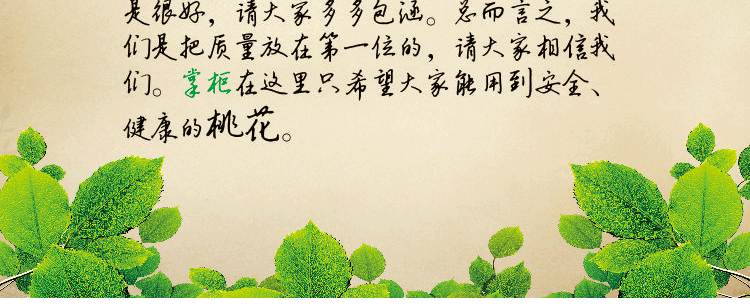 是很好，请大家多多包涵。总而言之，我
们是把质量放在第一位的，请大家相信我
们。掌柜在这里只希望大家能用到安全、
健康的桃花。